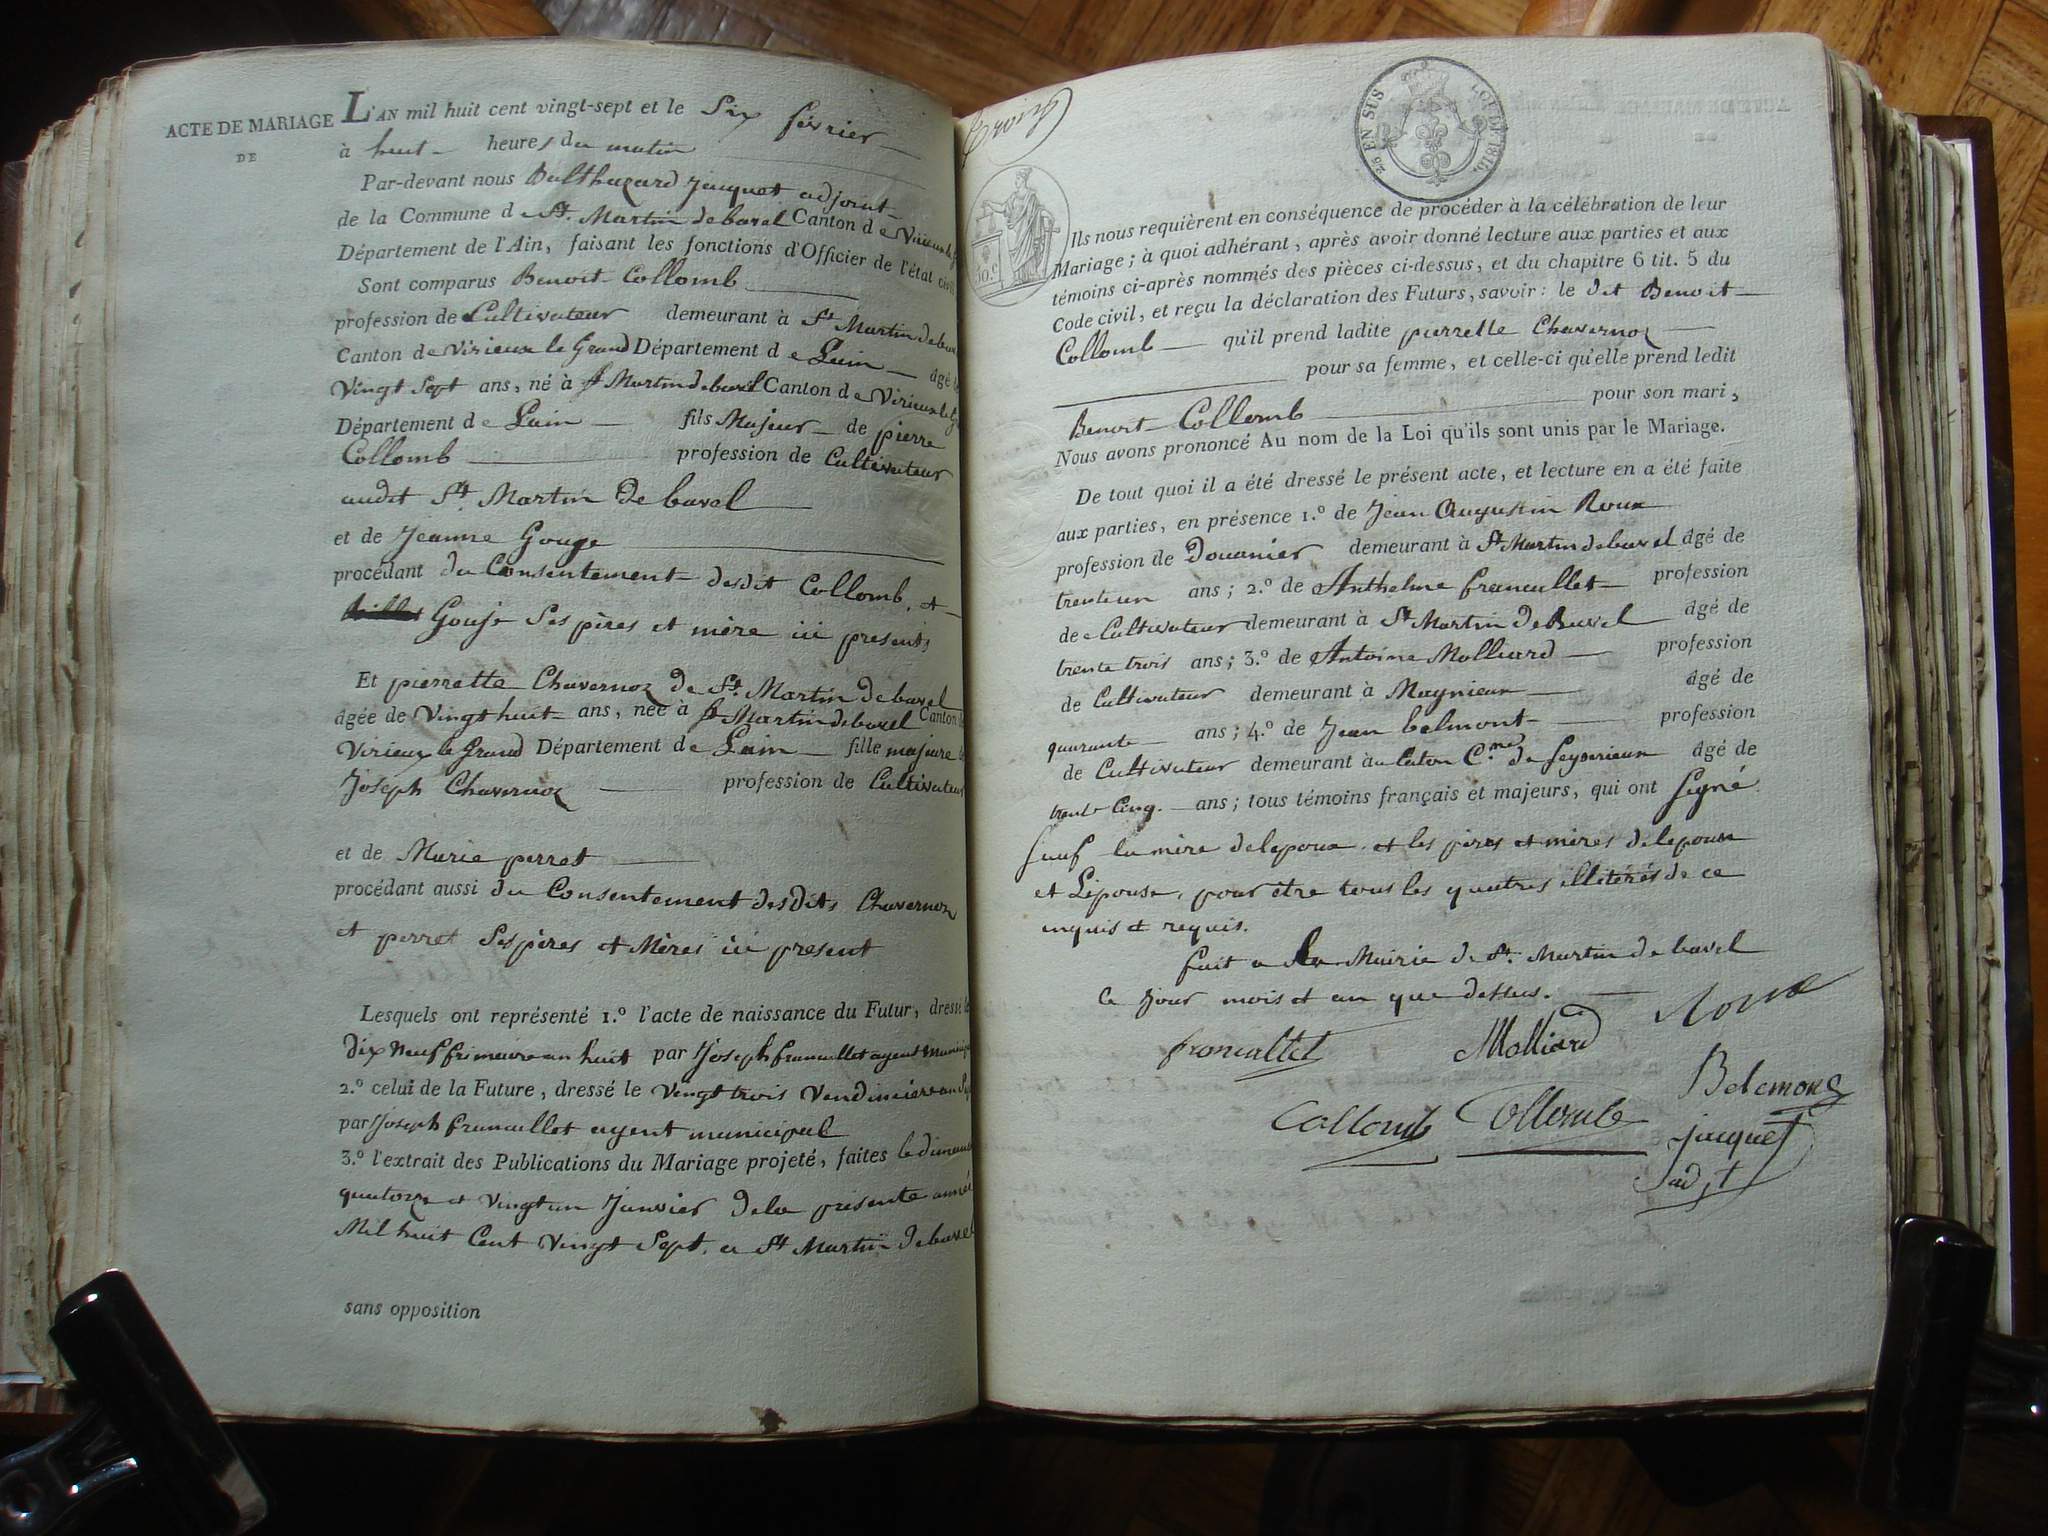 ACTE DE MARIAGE
DE
L'AN mil huit cent vingt-sept et le Six février
à huit heures du matin
Par-devant nous Balthazard Jacquet adjoint
de la Commune de St. Martin de bavel Canton de Virieux le
Département de l'Ain, faisant les fonctions d'Officier de l'état civil
Sont comparus Benoit Collomb
profession de Cultivateur demeurant à St Martin de bavel
Canton de Virieux le Grand Département de Lain âgé de
Vingt Sept ans, né à St Martin de bavel Canton de Virieux le G
Département de Lain fils Majeur de pierre
Collomb profession de Cultivateur
audit St. Martin de bavel
et de Jeanne Gouge
procédant du Consentement desdit Collomb, et
Gouje Ses pères et mère ici presents
Et pierrette Chavernoz de St. Martin de bavel
âgée de Vingt huit ans, née à St Martin de bavel Canton de
Virieux le Grand Département de Lain fille majeure de
Joseph Chavernoz profession de Cultivateur
et de Marie perret
procédant aussi du Consentement desdits Chavernoz
et perret Ses pères et Mères ici present
Lesquels ont représenté 1.º l'acte de naissance du Futur, dressé le
dix Neuf frimaire an huit par Joseph francillet agent Municipal
2.º celui de la Future, dressé le Vingt trois Vendimiére an Sept
par Joseph francillet agent municipal
3.º l'extrait des Publications du Mariage projeté, faites le dimanche
quatorze et Vingt un Janvier de la presente année
Mil huit Cent Vingt Sept, a St Martin de bavel
sans opposition
25 EN SUS
LOI DE 1816.
10.c
Ils nous requièrent en conséquence de procéder à la célébration de leur
Mariage; à quoi adhérant, après avoir donné lecture aux parties et aux
témoins ci-après nommés des pièces ci-dessus, et du chapitre 6 tit. 5 du
Code civil, et reçu la déclaration des Futurs, savoir: le dit Benoit
Collomb qu'il prend ladite pierrette Chavernoz
pour sa femme, et celle-ci qu'elle prend ledit
Benoit Collomb pour son mari,
Nous avons prononcé Au nom de la Loi qu'ils sont unis par le Mariage.
De tout quoi il a été dressé le présent acte, et lecture en a été faite
aux parties, en présence 1.º de Jean Augustin Roux
profession de Douanier demeurant à St Martin de bavel âgé de
trente un ans; 2.º de Anthelme francillet profession
de Cultivateur demeurant à St Martin de Bavel âgé de
trente trois ans; 3.º de Antoine Molliard profession
de Cultivateur demeurant à Maynieux âgé de
quarante ans; 4.º de Jean belmont profession
de Cultivateur demeurant à Cme de Seyserieux âgé de
trente Cinq. ans; tous témoins français et majeurs, qui ont Signé
Sauf la mère de lepoux et les pères et mères de lepouse
et Lépouse, pour être tous les quatres illitérés de ce
enquis et requis.
fait a la Mairie de St. Martin de bavel
Ce jour mois et an que dessus.
francillet Molliard Roux
Belemont
Collomb Collomb
Jacquet
adjt